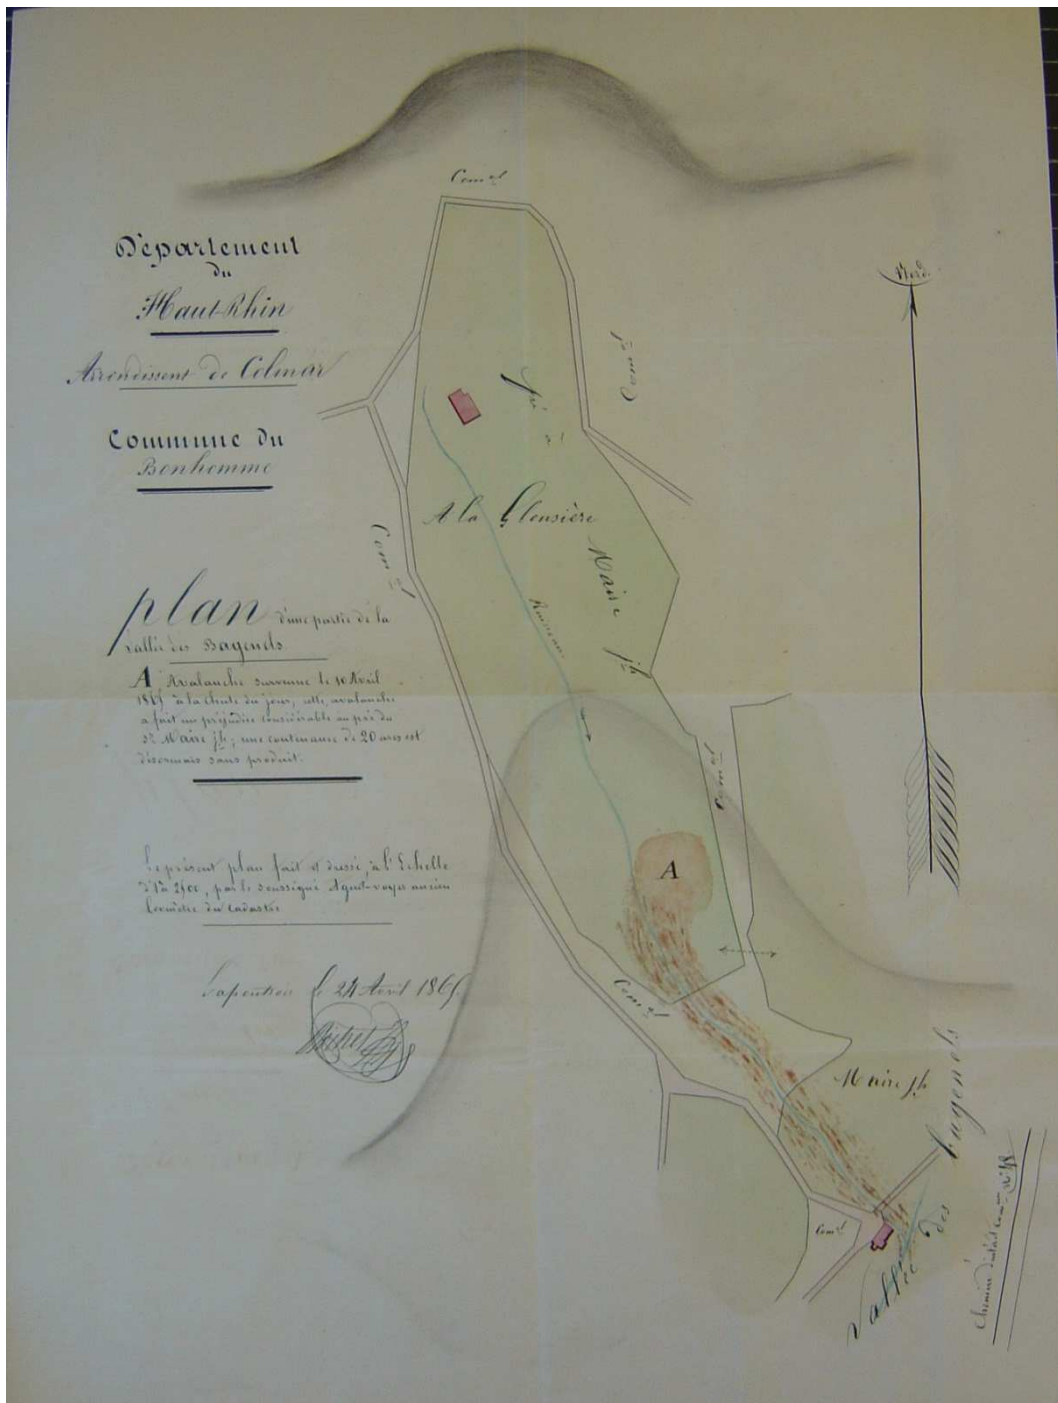 Département
du
Haut-Rhin
Arrondissent de Colmar
Commune du
Bonhomme
plan d'une partie de la
vallée des Bagenels
A Avalanche survenue le 10 Avril
à la chute du jour, cette avalanche
a fait un préjudice considérable au pré du
Sr. Maire jh; une contenance de 20 ares est
désormais sans produit.
Le présent plan fait et dressé, à l'Echelle
d'1 à 2500, par le soussigné Agent-voyer ancien
Géomètre du Cadastre
Lapoutroie le 24 Avril
Comal
Nord.
Comal
Pré à
A la
Maire jh
Comal
Ruisseau
Comal
A
Comal
Maire jh
Comal
Vallée des bagenels
Chemin d'intérêt comun No 48